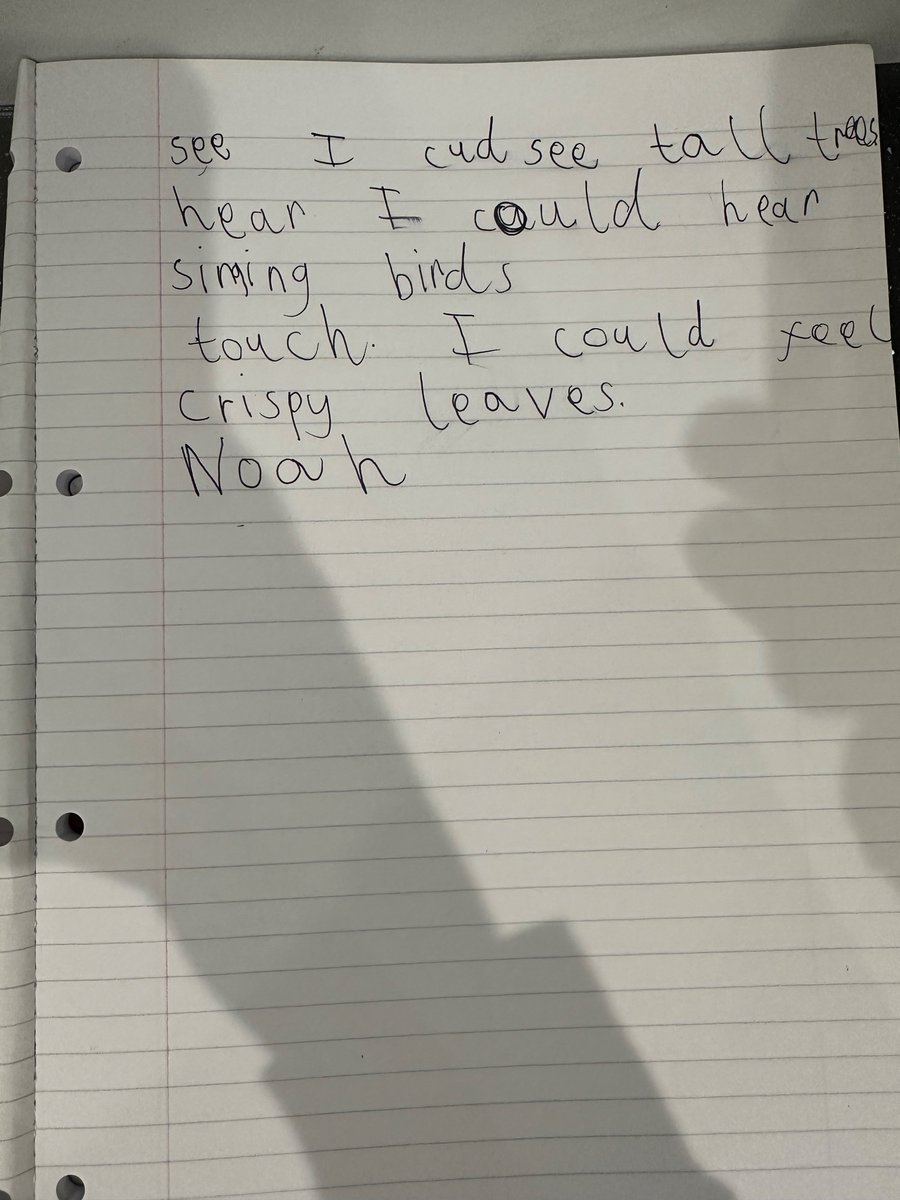 see I cud see tall trees
hear I could hear
siming birds
touch. I could feel
crispy leaves.
Noah